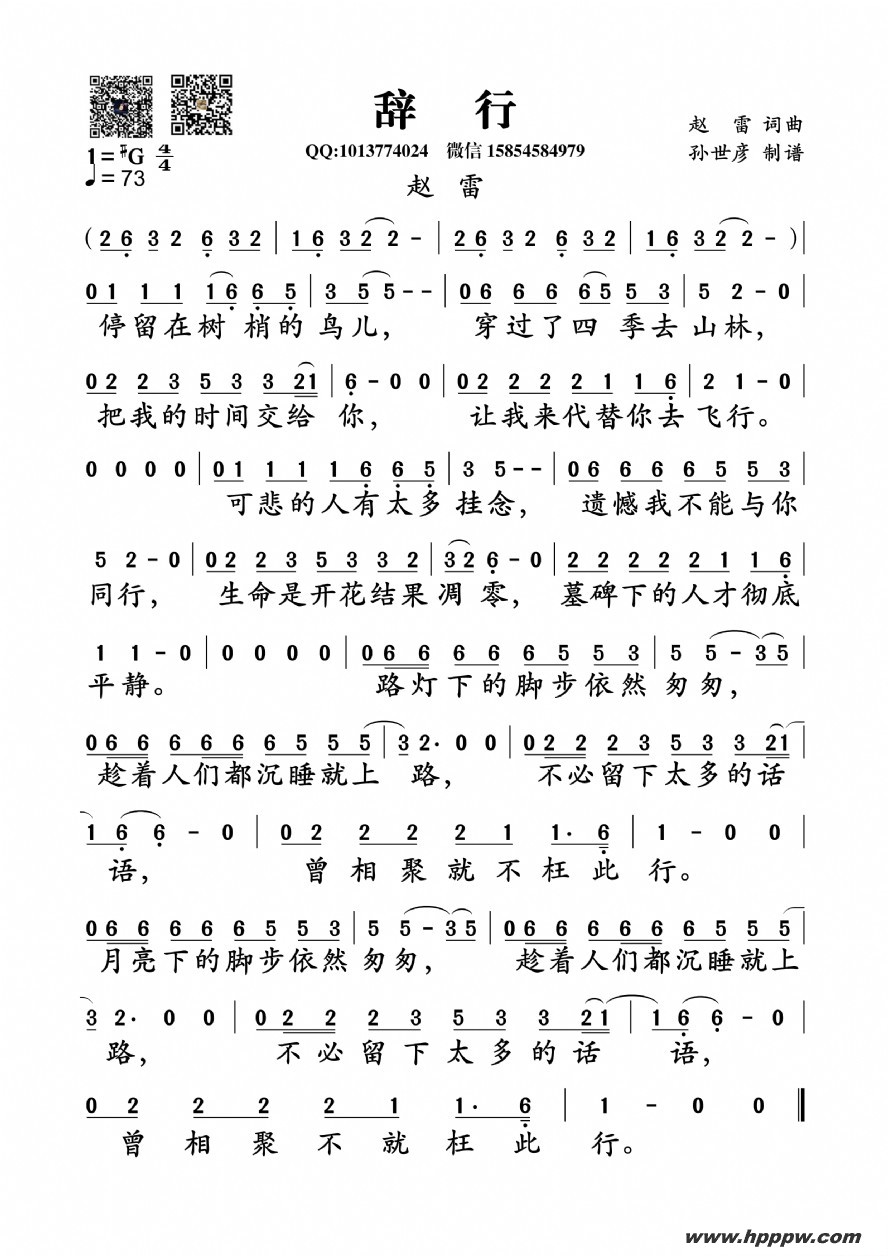 辞 行
赵 雷 词曲
1=#G 4/4
QQ:1013774024 微信 15854584979
孙世彦 制谱
♩=73
赵 雷
(2 6 3 2 6 3 2 | 1 6 3 2 2 - | 2 6 3 2 6 3 2 | 1 6 3 2 2 - )|
0 1 1 1 1 6 6 5 | 3 5 5 - - | 0 6 6 6 6 5 5 3 | 5 2 - 0 |
停留在树 梢的 鸟儿, 穿过了四 季去 山林,
0 2 2 3 5 3 3 2 1 | 6 - 0 0 | 0 2 2 2 2 1 1 6 | 2 1 - 0 |
把我的时间交给 你, 让我来代替你去 飞行。
0 0 0 0 | 0 1 1 1 1 6 6 5 | 3 5 - - | 0 6 6 6 6 5 5 3 |
可悲的人有太多 挂念, 遗憾我不能与你
5 2 - 0 | 0 2 2 3 5 3 3 2 | 3 2 6 - 0 | 2 2 2 2 2 1 1 6 |
同行, 生命是开花结果 凋 零, 墓碑下的人才彻底
1 1 - 0 | 0 0 0 0 | 0 6 6 6 6 6 5 5 3 | 5 5 - 3 5 |
平静。 路灯下的脚步依然 匆匆,
0 6 6 6 6 6 6 5 5 5 | 3 2· 0 0 | 0 2 2 2 3 5 3 3 2 1 |
趁着人们都沉睡就上 路, 不必留下太多的话
1 6 6 - 0 | 0 2 2 2 2 1 1· 6 | 1 - 0 0 |
语, 曾相聚就不枉此 行。
0 6 6 6 6 6 5 5 3 | 5 5 - 3 5 | 0 6 6 6 6 6 6 5 5 5 |
月亮下的脚步依然 匆匆, 趁着人们都沉睡就上
3 2· 0 0 | 0 2 2 2 3 5 3 3 2 1 | 1 6 6 - 0 |
路, 不必留下太多的话 语,
0 2 2 2 2 1 1· 6 | 1 - 0 0 ‖
曾相聚不就枉此 行。
www.hpppw.com